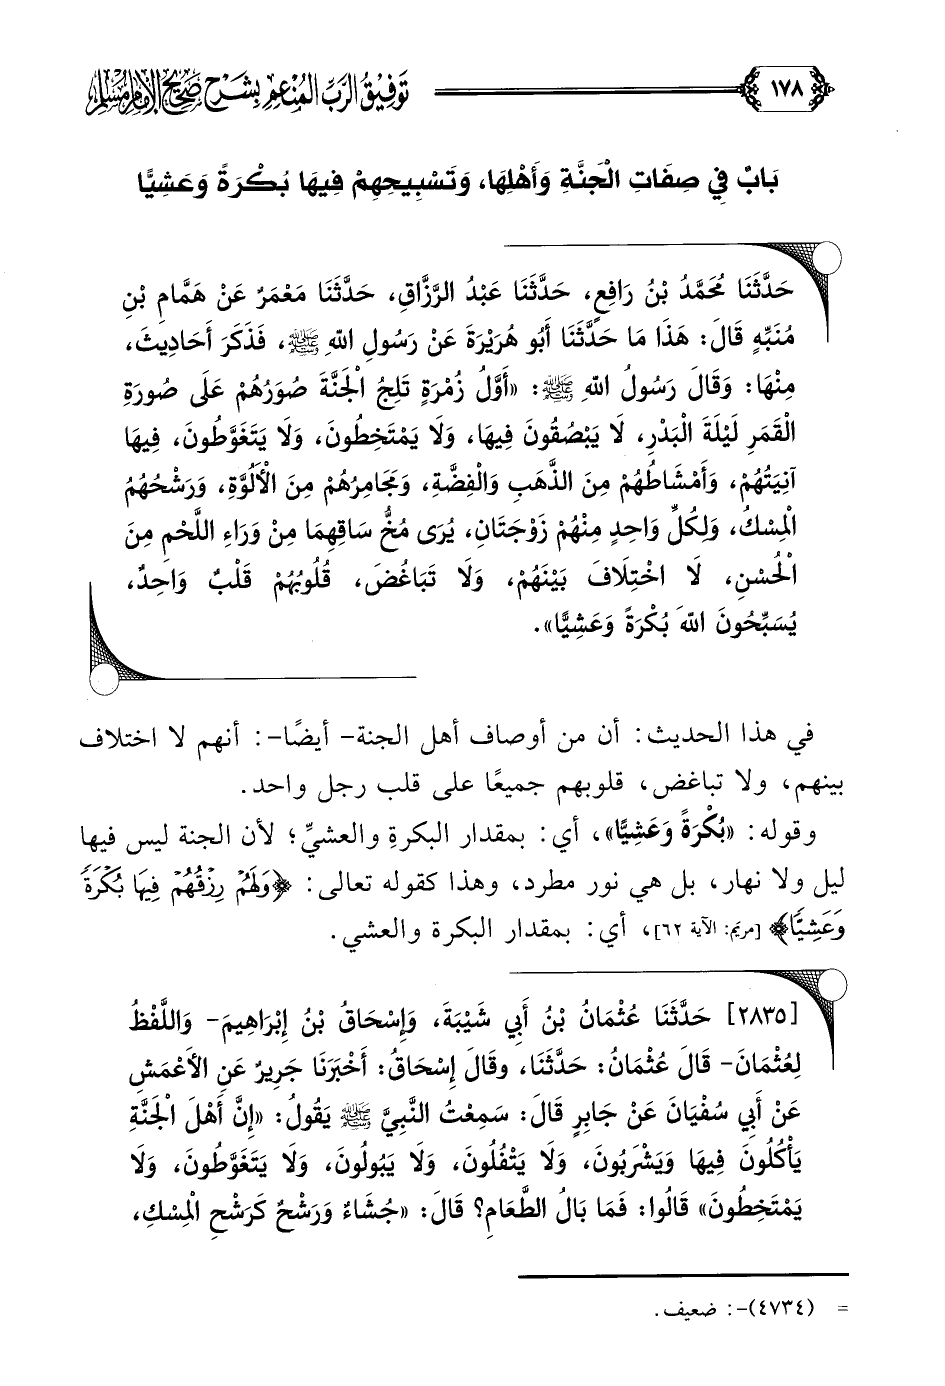 ١٧٨ توفيق الرب المنعم بشرح صحيح الإمام مسلم
بَابٌ فِي صِفَاتِ الْجَنَّةِ وَأَهْلِهَا، وَتَسْبِيحِهِمْ فِيهَا بُكْرَةً وَعَشِيًّا
حَدَّثَنَا مُحَمَّدُ بْنُ رَافِعٍ، حَدَّثَنَا عَبْدُ الرَّزَّاقِ، حَدَّثَنَا مَعْمَرٌ عَنْ هَمَّامِ بْنِ
مُنَبِّهٍ قَالَ: هَذَا مَا حَدَّثَنَا أَبُو هُرَيْرَةَ عَنْ رَسُولِ اللهِ ﷺ، فَذَكَرَ أَحَادِيثَ،
مِنْهَا: وَقَالَ رَسُولُ اللهِ ﷺ: «أَوَّلُ زُمْرَةٍ تَلِجُ الْجَنَّةَ صُوَرُهُمْ عَلَى صُورَةِ
الْقَمَرِ لَيْلَةَ الْبَدْرِ، لَا يَبْصُقُونَ فِيهَا، وَلَا يَمْتَخِطُونَ، وَلَا يَتَغَوَّطُونَ، فِيهَا
آنِيَتُهُمْ، وَأَمْشَاطُهُمْ مِنَ الذَّهَبِ وَالْفِضَّةِ، وَمَجَامِرُهُمْ مِنَ الْأَلُوَّةِ، وَرَشْحُهُمُ
الْمِسْكُ، وَلِكُلِّ وَاحِدٍ مِنْهُمْ زَوْجَتَانِ، يُرَى مُخُّ سَاقِهِمَا مِنْ وَرَاءِ اللَّحْمِ مِنَ
الْحُسْنِ، لَا اخْتِلَافَ بَيْنَهُمْ، وَلَا تَبَاغُضَ، قُلُوبُهُمْ قَلْبٌ وَاحِدٌ،
يُسَبِّحُونَ اللهَ بُكْرَةً وَعَشِيًّا».
في هذا الحديث: أن من أوصاف أهل الجنة- أيضًا-: أنهم لا اختلاف
بينهم، ولا تباغض، قلوبهم جميعًا على قلب رجل واحد.
وقوله: «بُكْرَةً وَعَشِيًّا»، أي: بمقدار البكرةِ والعشيِّ؛ لأن الجنة ليس فيها
ليل ولا نهار، بل هي نور مطرد، وهذا كقوله تعالى: ﴿وَلَهُمْ رِزْقُهُمْ فِيهَا بُكْرَةً
وَعَشِيًّا﴾ [مريم: الآية ٦٢]، أي: بمقدار البكرة والعشي.
[٢٨٣٥] حَدَّثَنَا عُثْمَانُ بْنُ أَبِي شَيْبَةَ، وَإِسْحَاقُ بْنُ إِبْرَاهِيمَ- وَاللَّفْظُ
لِعُثْمَانَ- قَالَ عُثْمَانُ: حَدَّثَنَا، وقَالَ إِسْحَاقُ: أَخْبَرَنَا جَرِيرٌ عَنِ الْأَعْمَشِ
عَنْ أَبِي سُفْيَانَ عَنْ جَابِرٍ قَالَ: سَمِعْتُ النَّبِيَّ ﷺ يَقُولُ: «إِنَّ أَهْلَ الْجَنَّةِ
يَأْكُلُونَ فِيهَا وَيَشْرَبُونَ، وَلَا يَتْفُلُونَ، وَلَا يَبُولُونَ، وَلَا يَتَغَوَّطُونَ، وَلَا
يَمْتَخِطُونَ» قَالُوا: فَمَا بَالُ الطَّعَامِ؟ قَالَ: «جُشَاءٌ وَرَشْحٌ كَرَشْحِ الْمِسْكِ،
= (٤٧٣٤)-: ضعيف.